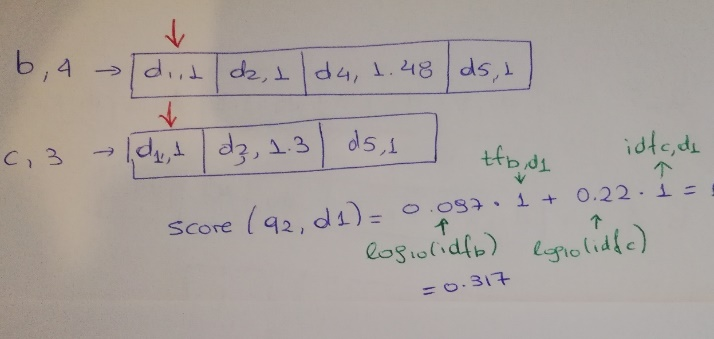 b, 4 → d1, 1 d2, 1 d4, 1.48 d5, 1
c, 3 → d1, 1 d3, 1.3 d5, 1
tfb,d1 idfc,d1
score (q2, d1) = 0.097 · 1 + 0.22 · 1 =
log10(idfb) log10(idfc)
= 0.317